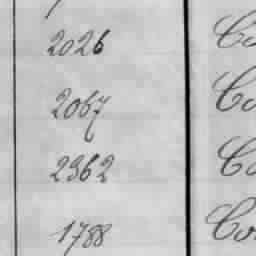 2026 Co
2067 Co
2362 Co
1788 Con